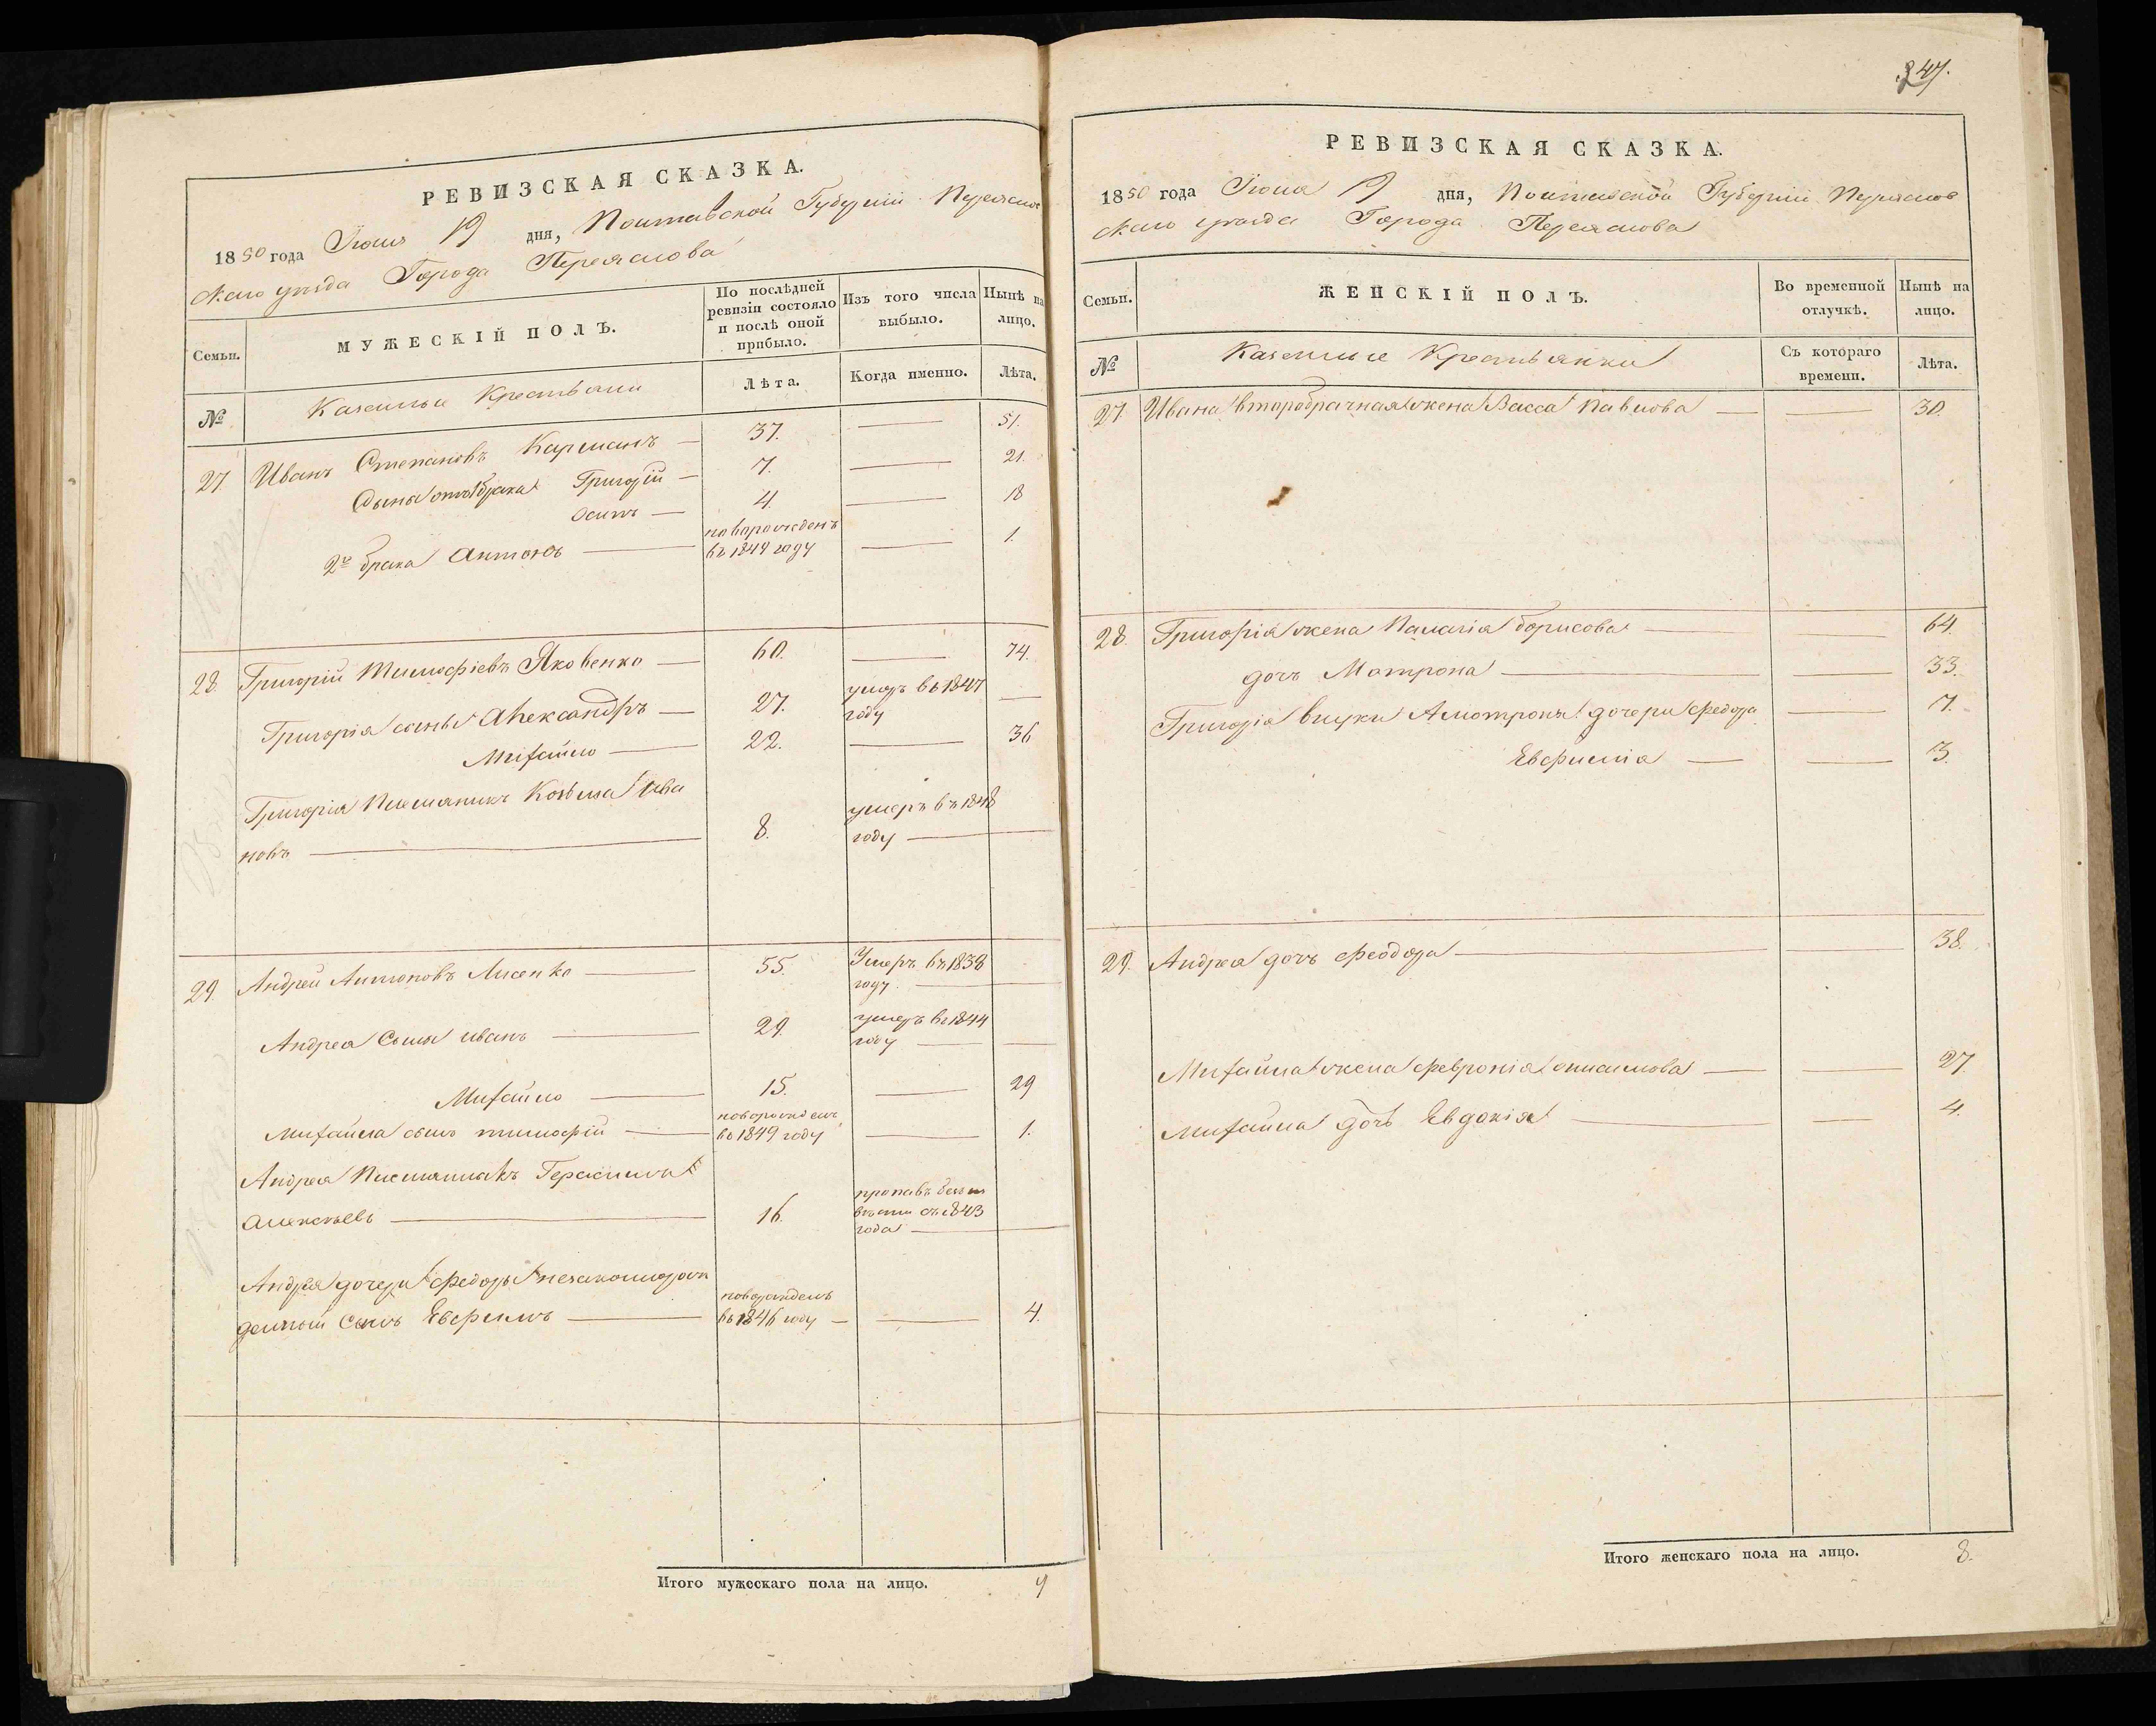 РЕВИЗСКАЯ СКАЗКА.
1850 года Июня 19 дня, Полтавской Губерніи Переяслов
скаго уѣзда Города Переяслова
Семьи.
МУЖЕСКІЙ ПОЛЪ.
По послѣдней
ревизіи состояло
и послѣ оной
прибыло.
Изъ того числа
выбыло.
Нынѣ на
лицо.
№
Казенные Крестьяне
Лѣта.
Когда именно.
Лѣта.
27 Иванъ Степановъ Карманъ — 37. — 51.
Сыны отъ 1 брака Григорій — 7. — 21.
Осипъ — 4. — 18
новорожденъ
2го брака Антонъ — въ 1849 году — 1.
28. Григорій Тимофіевъ Яковенко — 60. — 74.
Григорія сыны Александръ — 27. умеръ въ 1847
году —
Михайло — 22. — 36
Григорія Племянникъ Козьма Ива
новъ — 8. умеръ въ 1848
году —
29. Андрей Антоновъ Лисенко — 55. Умеръ въ 1838
году —
Андрея Сыны Иванъ — 29. умеръ въ 1844
году —
Михайло — 15. — 29
новорожденъ
Михайла сынъ Тимофій — въ 1849 году — 1.
Андрея Племянникъ Герасимъ
Алексѣевъ — 16. пропавъ безъ
вѣсти съ 1843
года —
Андрея дочери Федоры незаконнорож
денный Сынъ Евфимъ — новорожденъ
въ 1846 году — — 4.
Итого мужескаго пола на лицо. 9
347.
РЕВИЗСКАЯ СКАЗКА.
1850 года Июня 19 дня, Полтавской Губерніи Переяслов
скаго уѣзда Города Переяслова
Семьи.
ЖЕНСКІЙ ПОЛЪ.
Во временной
отлучкѣ.
Нынѣ на
лицо.
№
Казенные Крестьянки
Съ котораго
времени.
Лѣта.
27. Ивана второбрачная жена Васса Павлова — — 30.
28. Григорія жена Палагія Борисова — 64.
дочь Мотрона — — 33.
Григорія внуки А Мотроны дочери Федора — 7.
Евфимія — — 3.
29. Андрея дочь Феодора — — 38.
Михайла жена Февронія Онисимова — — 27
Михайла дочь Евдокія — — 4.
Итого женскаго пола на лицо. 8.